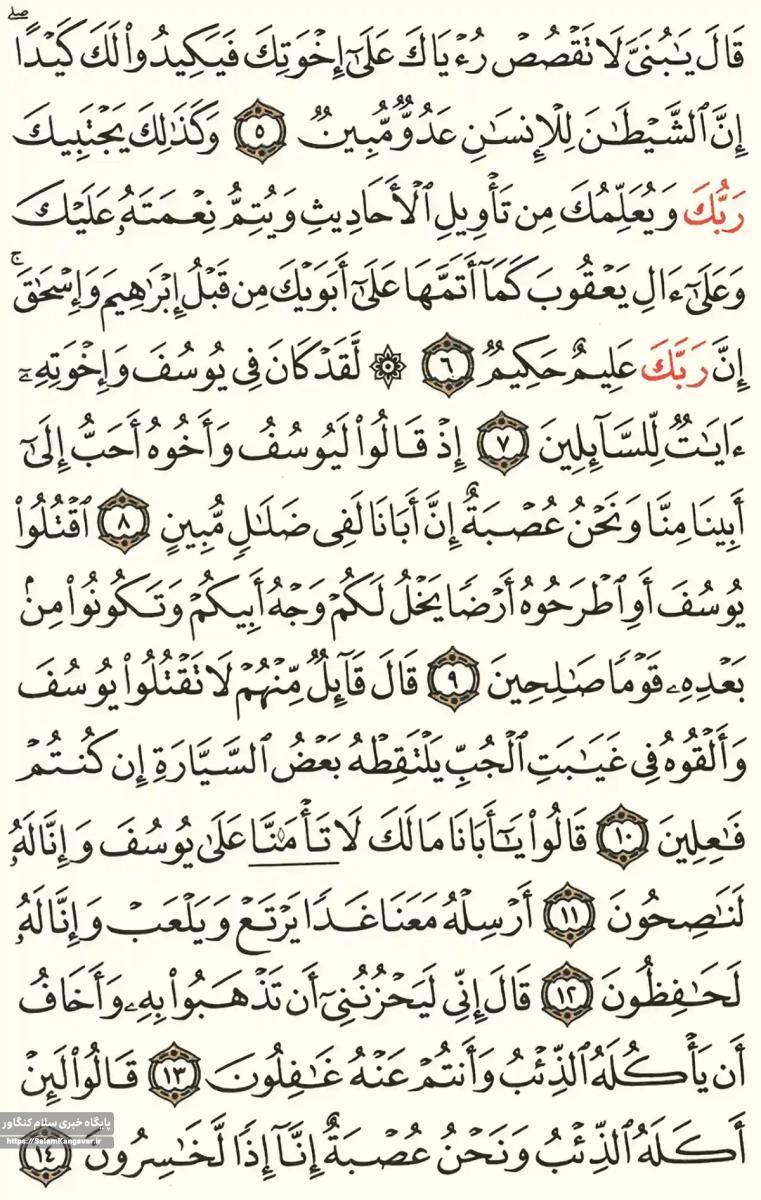 قَالَ يَـٰبُنَىَّ لَا تَقْصُصْ رُءْيَاكَ عَلَىٰٓ إِخْوَتِكَ فَيَكِيدُوا۟ لَكَ كَيْدًا ۖ
إِنَّ ٱلشَّيْطَـٰنَ لِلْإِنسَـٰنِ عَدُوٌّ مُّبِينٌ ٥ وَكَذَٰلِكَ يَجْتَبِيكَ
رَبُّكَ وَيُعَلِّمُكَ مِن تَأْوِيلِ ٱلْأَحَادِيثِ وَيُتِمُّ نِعْمَتَهُۥ عَلَيْكَ
وَعَلَىٰٓ ءَالِ يَعْقُوبَ كَمَآ أَتَمَّهَا عَلَىٰٓ أَبَوَيْكَ مِن قَبْلُ إِبْرَٰهِيمَ وَإِسْحَـٰقَ ۚ
إِنَّ رَبَّكَ عَلِيمٌ حَكِيمٌ ٦ ۞ لَّقَدْ كَانَ فِى يُوسُفَ وَإِخْوَتِهِۦٓ
ءَايَـٰتٌ لِّلسَّآئِلِينَ ٧ إِذْ قَالُوا۟ لَيُوسُفُ وَأَخُوهُ أَحَبُّ إِلَىٰٓ
أَبِينَا مِنَّا وَنَحْنُ عُصْبَةٌ إِنَّ أَبَانَا لَفِى ضَلَـٰلٍ مُّبِينٍ ٨ ٱقْتُلُوا۟
يُوسُفَ أَوِ ٱطْرَحُوهُ أَرْضًا يَخْلُ لَكُمْ وَجْهُ أَبِيكُمْ وَتَكُونُوا۟ مِنۢ
بَعْدِهِۦ قَوْمًا صَـٰلِحِينَ ٩ قَالَ قَآئِلٌ مِّنْهُمْ لَا تَقْتُلُوا۟ يُوسُفَ
وَأَلْقُوهُ فِى غَيَـٰبَتِ ٱلْجُبِّ يَلْتَقِطْهُ بَعْضُ ٱلسَّيَّارَةِ إِن كُنتُمْ
فَـٰعِلِينَ ١٠ قَالُوا۟ يَـٰٓأَبَانَا مَا لَكَ لَا تَأْمَ۫نَّا عَلَىٰ يُوسُفَ وَإِنَّا لَهُۥ
لَنَـٰصِحُونَ ١١ أَرْسِلْهُ مَعَنَا غَدًا يَرْتَعْ وَيَلْعَبْ وَإِنَّا لَهُۥ
لَحَـٰفِظُونَ ١٢ قَالَ إِنِّى لَيَحْزُنُنِىٓ أَن تَذْهَبُوا۟ بِهِۦ وَأَخَافُ
أَن يَأْكُلَهُ ٱلذِّئْبُ وَأَنتُمْ عَنْهُ غَـٰفِلُونَ ١٣ قَالُوا۟ لَئِنْ
أَكَلَهُ ٱلذِّئْبُ وَنَحْنُ عُصْبَةٌ إِنَّآ إِذًا لَّخَـٰسِرُونَ ١٤
پایگاه خبری سلام کنگاور
https://SalamKangavar.ir